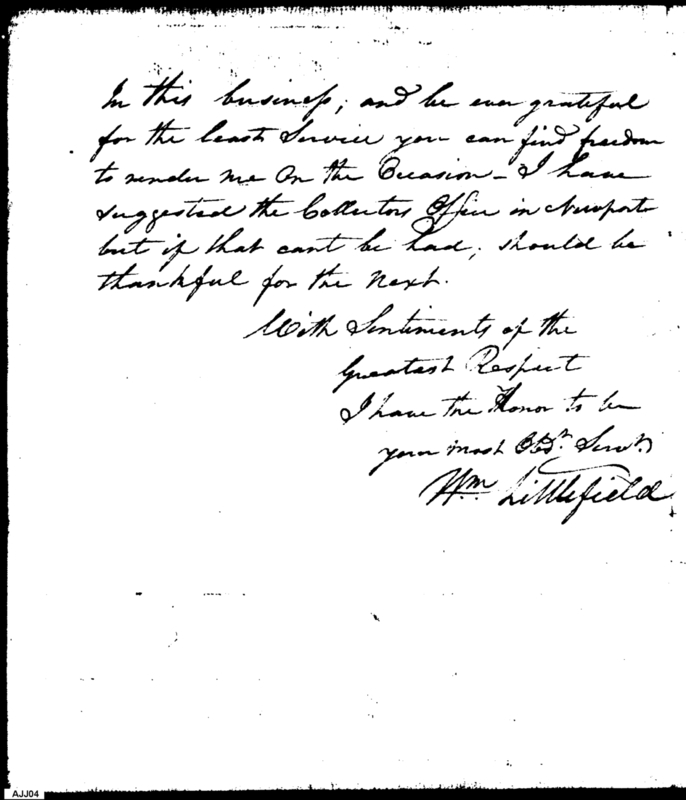 In this business, and be ever grateful
for the least Service you can find freedom
to render me On the Occasion – I have
suggested the Collectors Office in Newport
but if that cant be had, should be
thankful for the Next.
With Sentiments of the
Greatest Respect
I have the Honor to be
your most Obdt. Servt.
Wm Littlefield
AJJ04